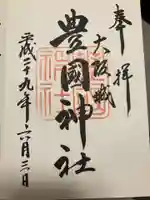 奉拝
大阪城
豊國神社
平成二十九年六月三日